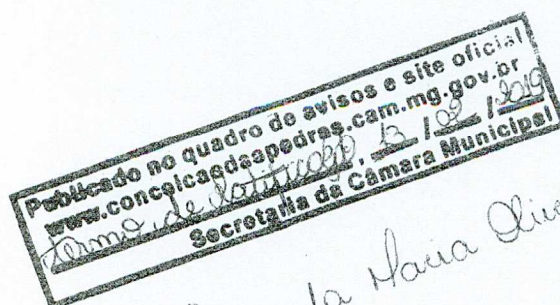 Publicado no quadro de avisos e site oficial
www.conceicaodaspedras.cam.mg.gov.br
Termo de , 13 / 02 / 2019
Secretaria da Câmara Municipal
da Maria Olive